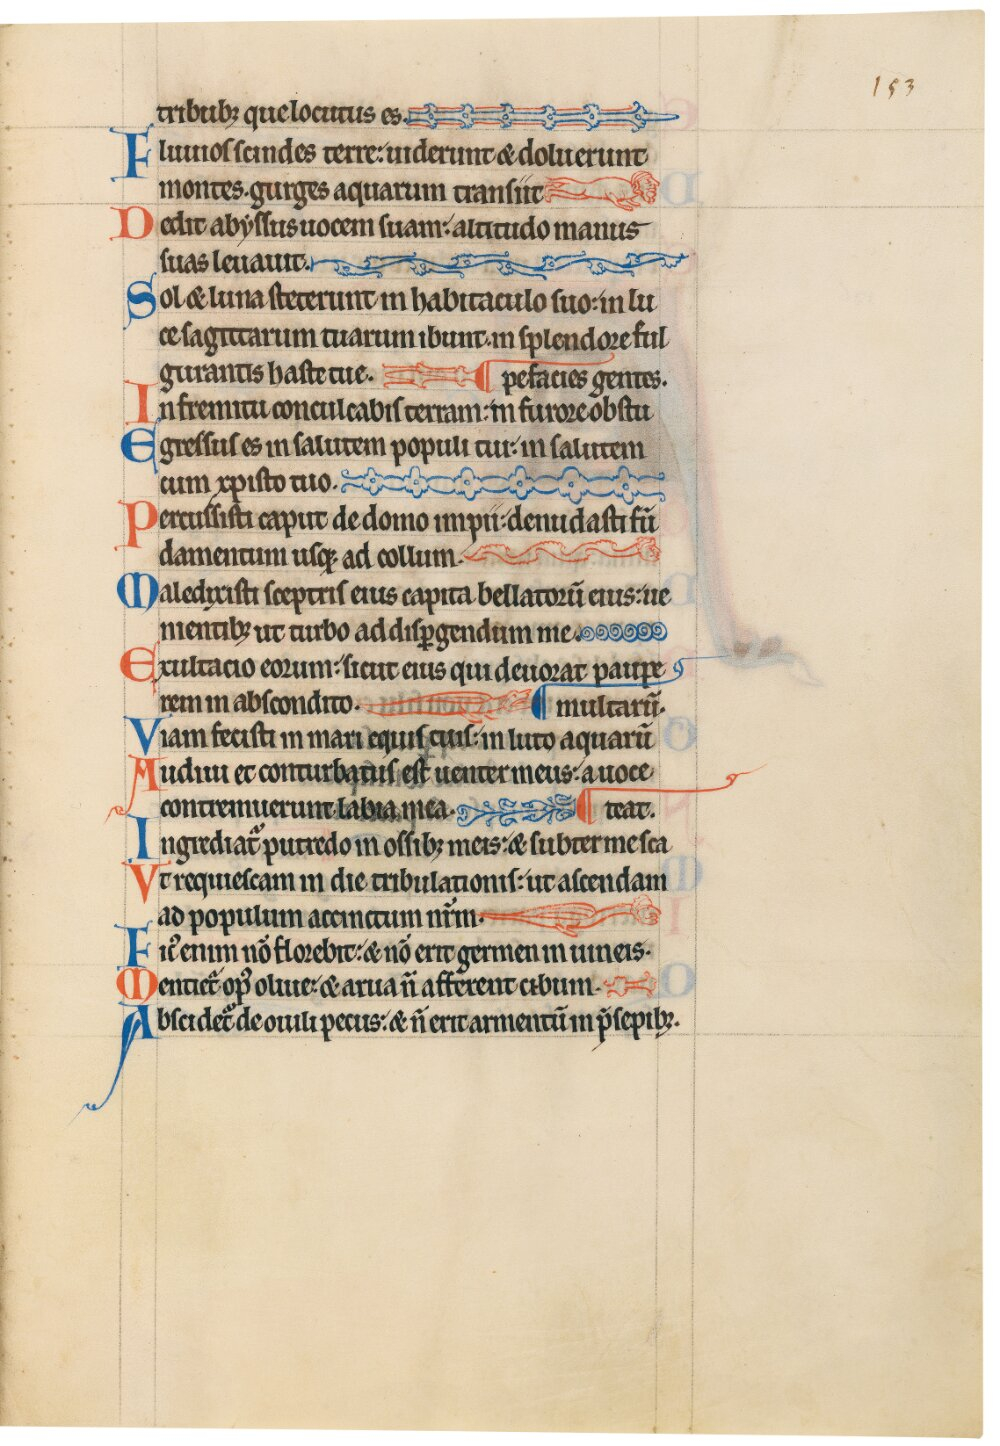 153
tribubꝫ que locutus es.
Fluuios scindes terre: uiderunt & doluerunt
montes. gurges aquarum transiit
Dedit abyssus uocem suam: altitudo manus
suas leuauit.
Sol & luna steterunt in habitaculo suo: in lu
ce sagittarum tuarum ibunt. in splendore ful
gurantis haste tue. pefacies gentes.
In fremitu conculcabis terram: in furore obstu
Egressus es in salutem populi tui: in salutem
cum xpisto tuo.
Percussisti caput de domo impii: denudasti fū
damentum usqꝫ ad collum.
Maledixisti sceptris eius capita bellatorū eius: ue
nientibꝫ ut turbo ad disꝑgendum me.
Exultacio eorum: sicut eius qui deuorat paupe
rem in abscondito. multarū.
Viam fecisti in mari equis tuis: in luto aquarū
Audiui et conturbatus est uenter meus: a uoce
contremuerunt labia mea. teat.
Ingrediat᷑ putredo in ossibꝫ meis: & subter me sca
Vt requiescam in die tribulationis: ut ascendam
ad populum accinctum nr̄m.
Fic᷒ enim nō florebit: & nō erit germen in uineis.
Mentiet᷑ op᷒ oliue: & arua n̄ afferent cibum.
Abscidet᷑ de ouili pecus: & n̄ erit armentū in p̄sepibꝫ.